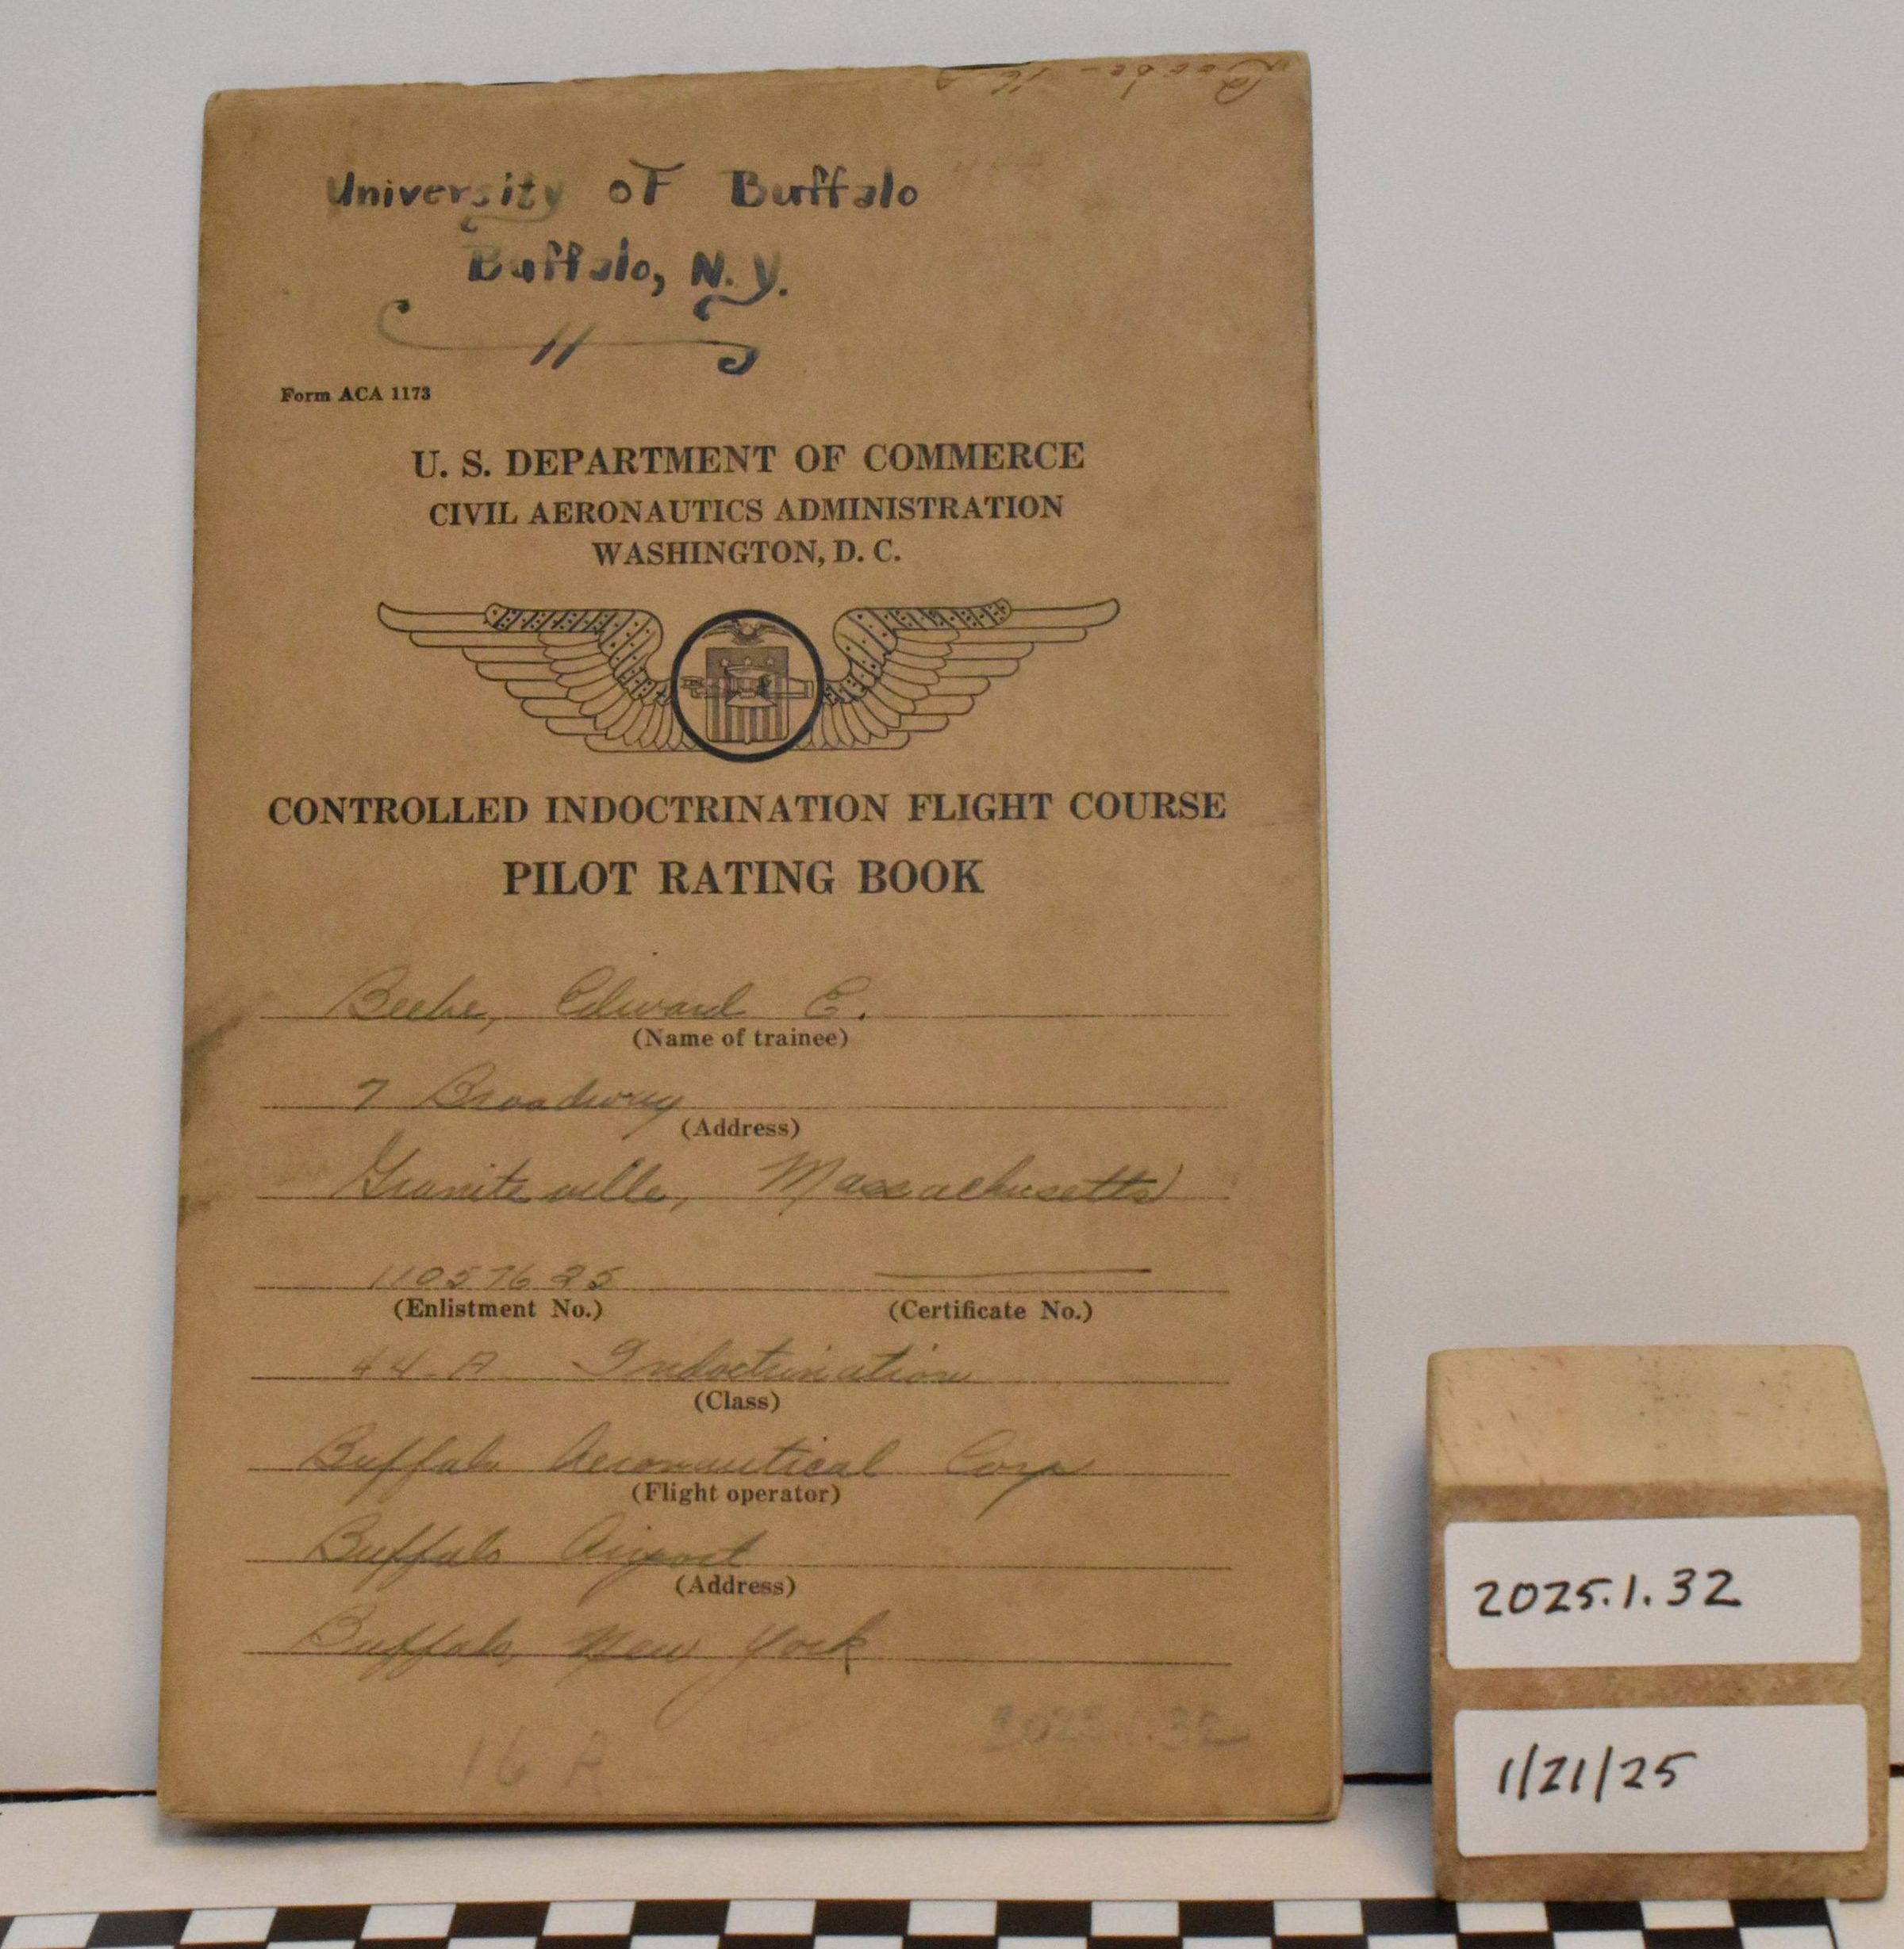 Beebe - 16 A
University of Buffalo
Buffalo, N.Y.
Form ACA 1173
U. S. DEPARTMENT OF COMMERCE
CIVIL AERONAUTICS ADMINISTRATION
WASHINGTON, D. C.
CONTROLLED INDOCTRINATION FLIGHT COURSE
PILOT RATING BOOK
Beebe, Edward E.
(Name of trainee)
7 Broadway
(Address)
Graniteville, Massachusetts
11057625
(Enlistment No.) (Certificate No.)
44-A Indoctrination
(Class)
Buffalo Aeronautical Corp
(Flight operator)
Buffalo Airport
(Address)
Buffalo, New York
16 A
2025.1.32
2025.1.32
1/21/25